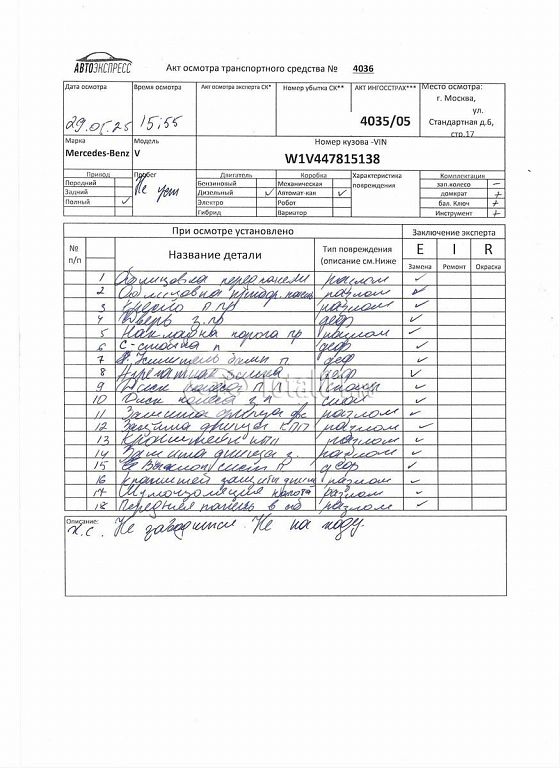 АВТОЭКСПРЕСС
Акт осмотра транспортного средства № 4036
Дата осмотра Время осмотра Акт осмотра эксперта СК* Номер убытка СК** АКТ ИНГОССТРАХ*** Место осмотра:
29.05.25 15:55 4035/05 г. Москва,
ул.
Стандартная д.6,
стр.17
Марка Модель Номер кузова -VIN
Mercedes-Benz V W1V447815138
Привод Пробег Двигатель Коробка Характеристика повреждения Комплектация
Передний Бензиновый Механическая зап.колесо –
Задний Дизельный ✓ Автомат-кая ✓ домкрат +
Полный ✓ Электро Робот бал. Ключ +
Гибрид Вариатор Инструмент +
При осмотре установлено Заключение эксперта
№ п/п Название детали Тип повреждения (описание см.Ниже E I R
Замена Ремонт Окраска
1 Облицовка перед панели разлом ✓
2 Облицовка разлом ✓
3 разлом ✓
4 Дверь з.пр деф ✓
5 Накладка порога пр разлом ✓
6 С-стойка п деф ✓
7 п деф ✓
8 деф ✓
9 Диск колеса п ✓
10 Диск колеса з п скол ✓
11 Защита двигуа разлом ✓
12 Защита двигуа КПП разлом ✓
13 Кронштейн разлом ✓
14 Защита з. разлом ✓
15 п деф ✓
16 кронштейн защиты разлом ✓
17 Шумоизоляция капота разлом ✓
18 Передняя панель в сб разлом ✓
Описание:
Х.С. Не заводится. Не на ходу.